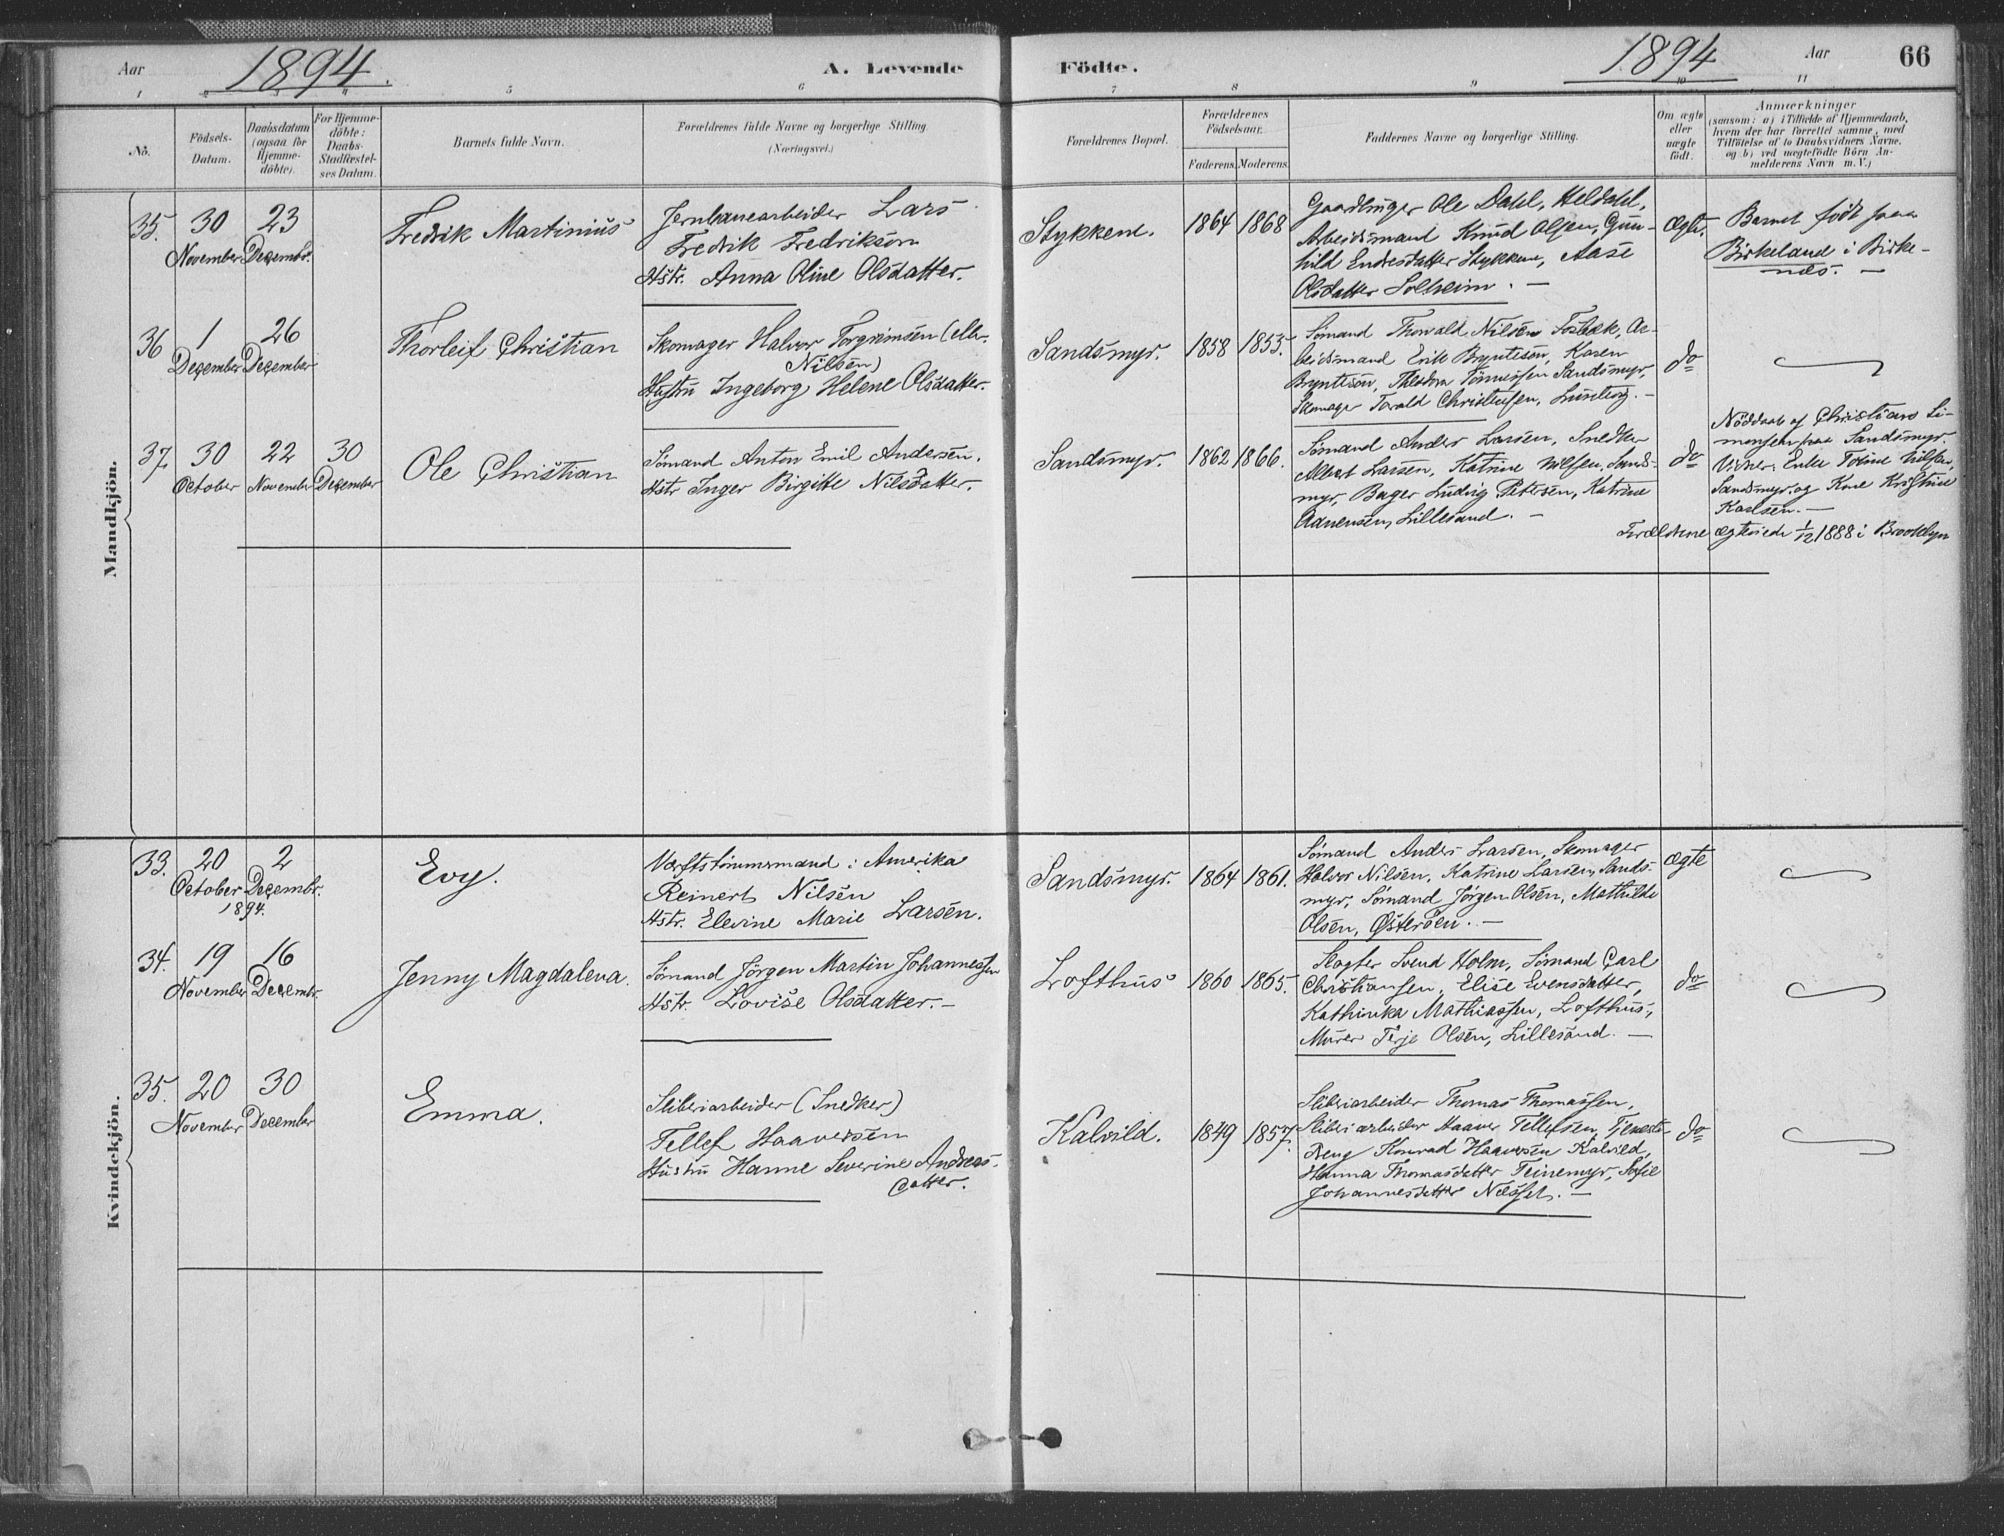 Aar 1894. A. Levende Födte. 1894 Aar 66
1 2 3 4 5 6 7 8 9 10 11
No.
Födsels-
Datum.
Daabsdatum
(ogsaa for
Hjemme-
döbte).
For Hjemme-
döbte:
Daabs-
Stadfæstel-
ses Datum.
Barnets fulde Navn.
Forældrenes fulde Navne og borgerlige Stilling.
(Næringsvei.)
Forældrenes Bopæl.
Forældrenes
Födselsaar.
Faderens. Moderens.
Faddernes Navne og borgerlige Stilling.
Om ægte
eller
uægte
födt.
Anmærkninger
(saasom: a) i Tilfælde af Hjemmedaab,
hvem der har forrettet samme, med
Tilföielse af to Daabsvidners Navne.
og b) ved uægtefödte Börn An-
melderens Navn m. V.)
Mandkjön.
35. 30
November
23
Decembr.
Fredrik Martinius
Jernbanearbeider Lars
Fredrik Fredriksen
Hstr. Anna Oline Olsdatter.
Stykkene.
1864 1868
Gaardbruger Ole Dahl, Heldahl,
Arbeidsmand Knud Olsen, Gun-
hild Endresdatter Stykkene, Aase
Olsdatter Solheim. —
Ægte.
Barnet födt paa
Birkeland i Birke-
næs. —
36 1
December
26
December
Thorleif Christian
Skomager Halvor Torgrimsen (ell.
Nilsen)
Hustru Ingeborg Helene Olsdatter.
Sandsmyr.
1858 1853.
Sömand Thorvald Nilsen Fosbæk, Ar-
beidsmand Erik Bryntesen, Karen
Bryntesen, Theodora Tönnessen Sandsmyr,
Skomager Torald Christensen, —
do
37. 30
October
22
November
30
December
Ole Christian
Sömand Anton Emil Andersen.
Hstr Inger Birgitte Nilsdatter.
Sandsmyr.
1862 1866.
Sömand Anders Larsen, Snedker
Albert Larsen, Katrine Nilsen, Sands-
myr, Bager Ludvig Petersen, Katrine
Lillesand. —
do
Nöddaab af Christiane Si-
monsen paa Sandsmyr.
Vidner: Enke Tobine Nilsen,
Sandsmyr, og Kone Kristine
Karlsen. —
Forældrene ægteviede 1/12 1888 i Brooklyn
Kvindekjön.
33. 20
October
1894.
2
Decembr.
Evy.
Værftstömmermand i Amerika
Reinert Nilsen
Hstr. Elevine Marie Larsen.
Sandsmyr.
1864 1861.
Sömand Anders Larsen, Skomager
Halvor Nilsen, Katrine Larsen, Sands-
myr, Sömand Jörgen Olsen, Mathilde
Olsen, Österöen. —
ægte
34. 19
November
16
Decembr.
Jenny Magdalena.
Sömand Jörgen Martin Johannessen
Hstr. Lovise Olsdatter. —
Lofthus
1860 1865.
Slagter Svend Holm, Sömand Carl
Christiansen, Elise Evensdatter,
Kathinka Mathiassen, Lofthus,
Murer Terje Olsen, Lillesand. —
do
35. 20
November
30
December
Emma.
Sliberiarbeider (Snedker)
Tellef Haaversen
Hustru Hanne Severine Andreas-
datter.
Kalvild.
1849 1857.
Sliberiarbeider Thomas Thomassen,
Sliberiarbeider Haaver Tellefsen, Tjeneste-
dreng Konrad Haaversen Kalvild,
Hanna Thomasdatter Teinemyr, Sofie
Johannesdatter Næsset. —
do